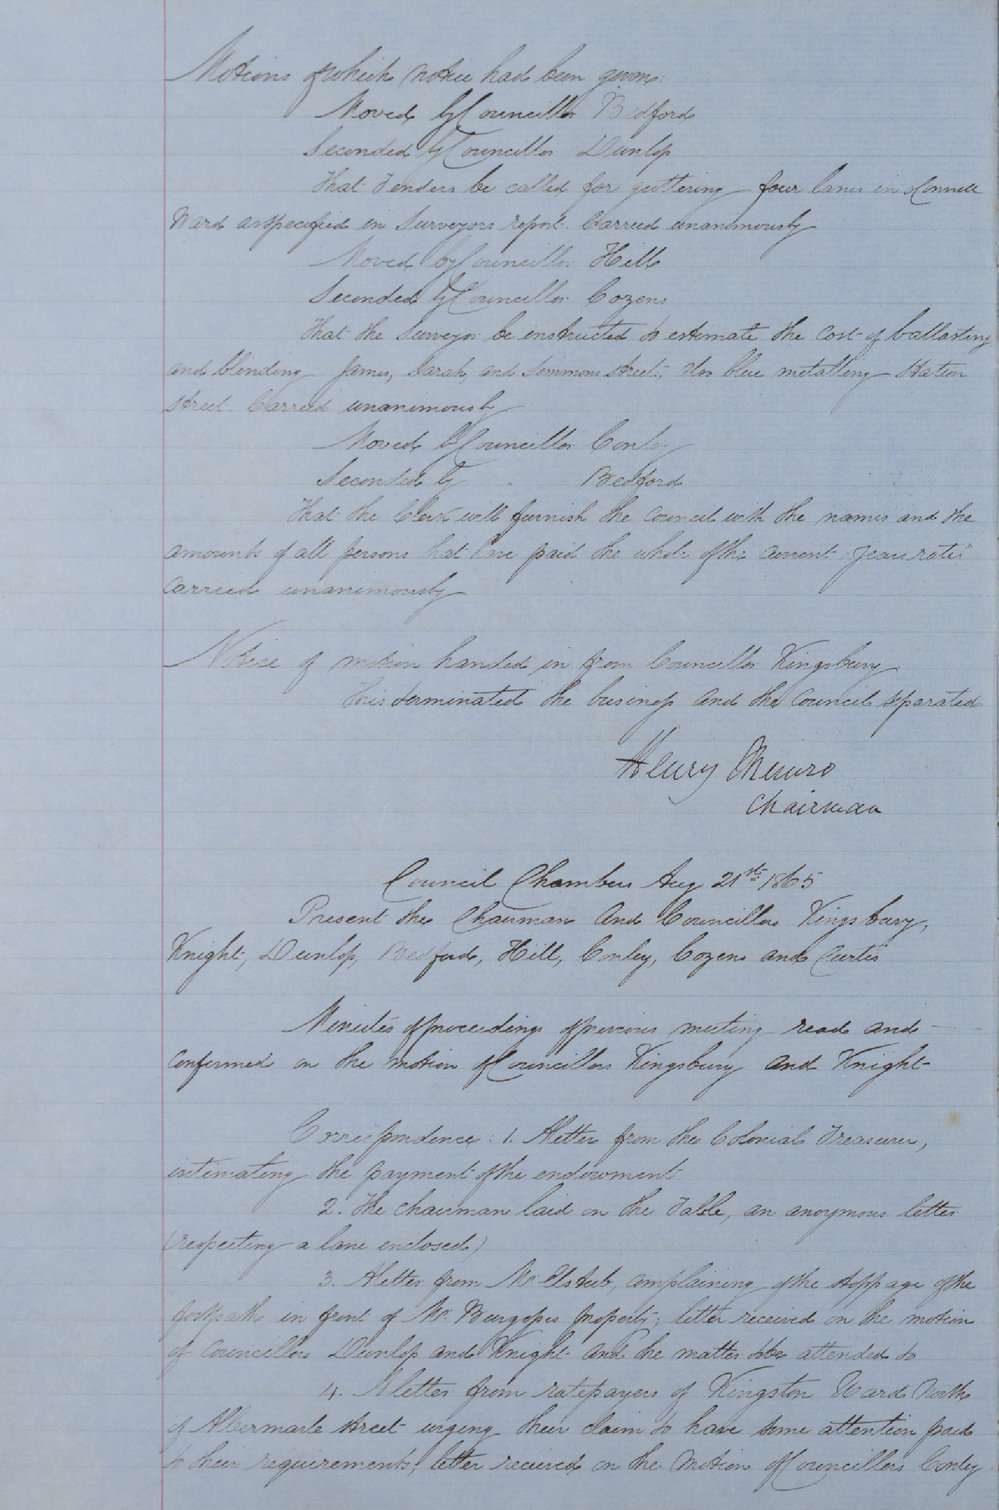 Motions of which notice had been given.
Moved by Councillor Bedford
Seconded by Councillor Dunlop
That Tenders be called for guttering four lanes in OConnell
Ward as specified in Surveyors report. Carried unanimously
Moved by Councillor Hill
Seconded by Councillor Cozens
That the Surveyor be instructed to estimate the cost of ballasting
and blinding James, Sarah, and Simmons Street, also blue metalling Station
Street. Carried unanimously
Moved by Councillor Conley
Seconded by " Bedford
That the Clerk will furnish the Council with the names and the
amounts of all persons that have paid the whole of the current years rates"
Carried unanimously
Notice of motion handed in from Councillor Kingsbury
This terminated the business and the Council separated
Henry Munro
Chairman
Council Chambers Aug 21st 1865
Present the Chairman and Councillors Kingsbury,
Knight, Dunlop, Bedford, Hill, Conley, Cozens and Curtis
Minutes of proceedings of previous meeting read and
confirmed on the motion of Councillors Kingsbury and Knight
Correspondence: 1. A letter from the Colonial Treasurer,
intimating the payment of the endowment
2. The chairman laid on the Table, an anoymous letter
(respecting a lane enclosed)
3. A letter from Mr Elstub complaining of the stoppage of the
footpath in front of Mr. property, letter received on the motion
of Councillors Dunlop and Knight and the matter to be attended to
4. A letter from ratepayers of Kingston Ward North
of Albermarle Street urging their claim to have some attention paid
to their requirements, letter received on the motion of Councillors Conley